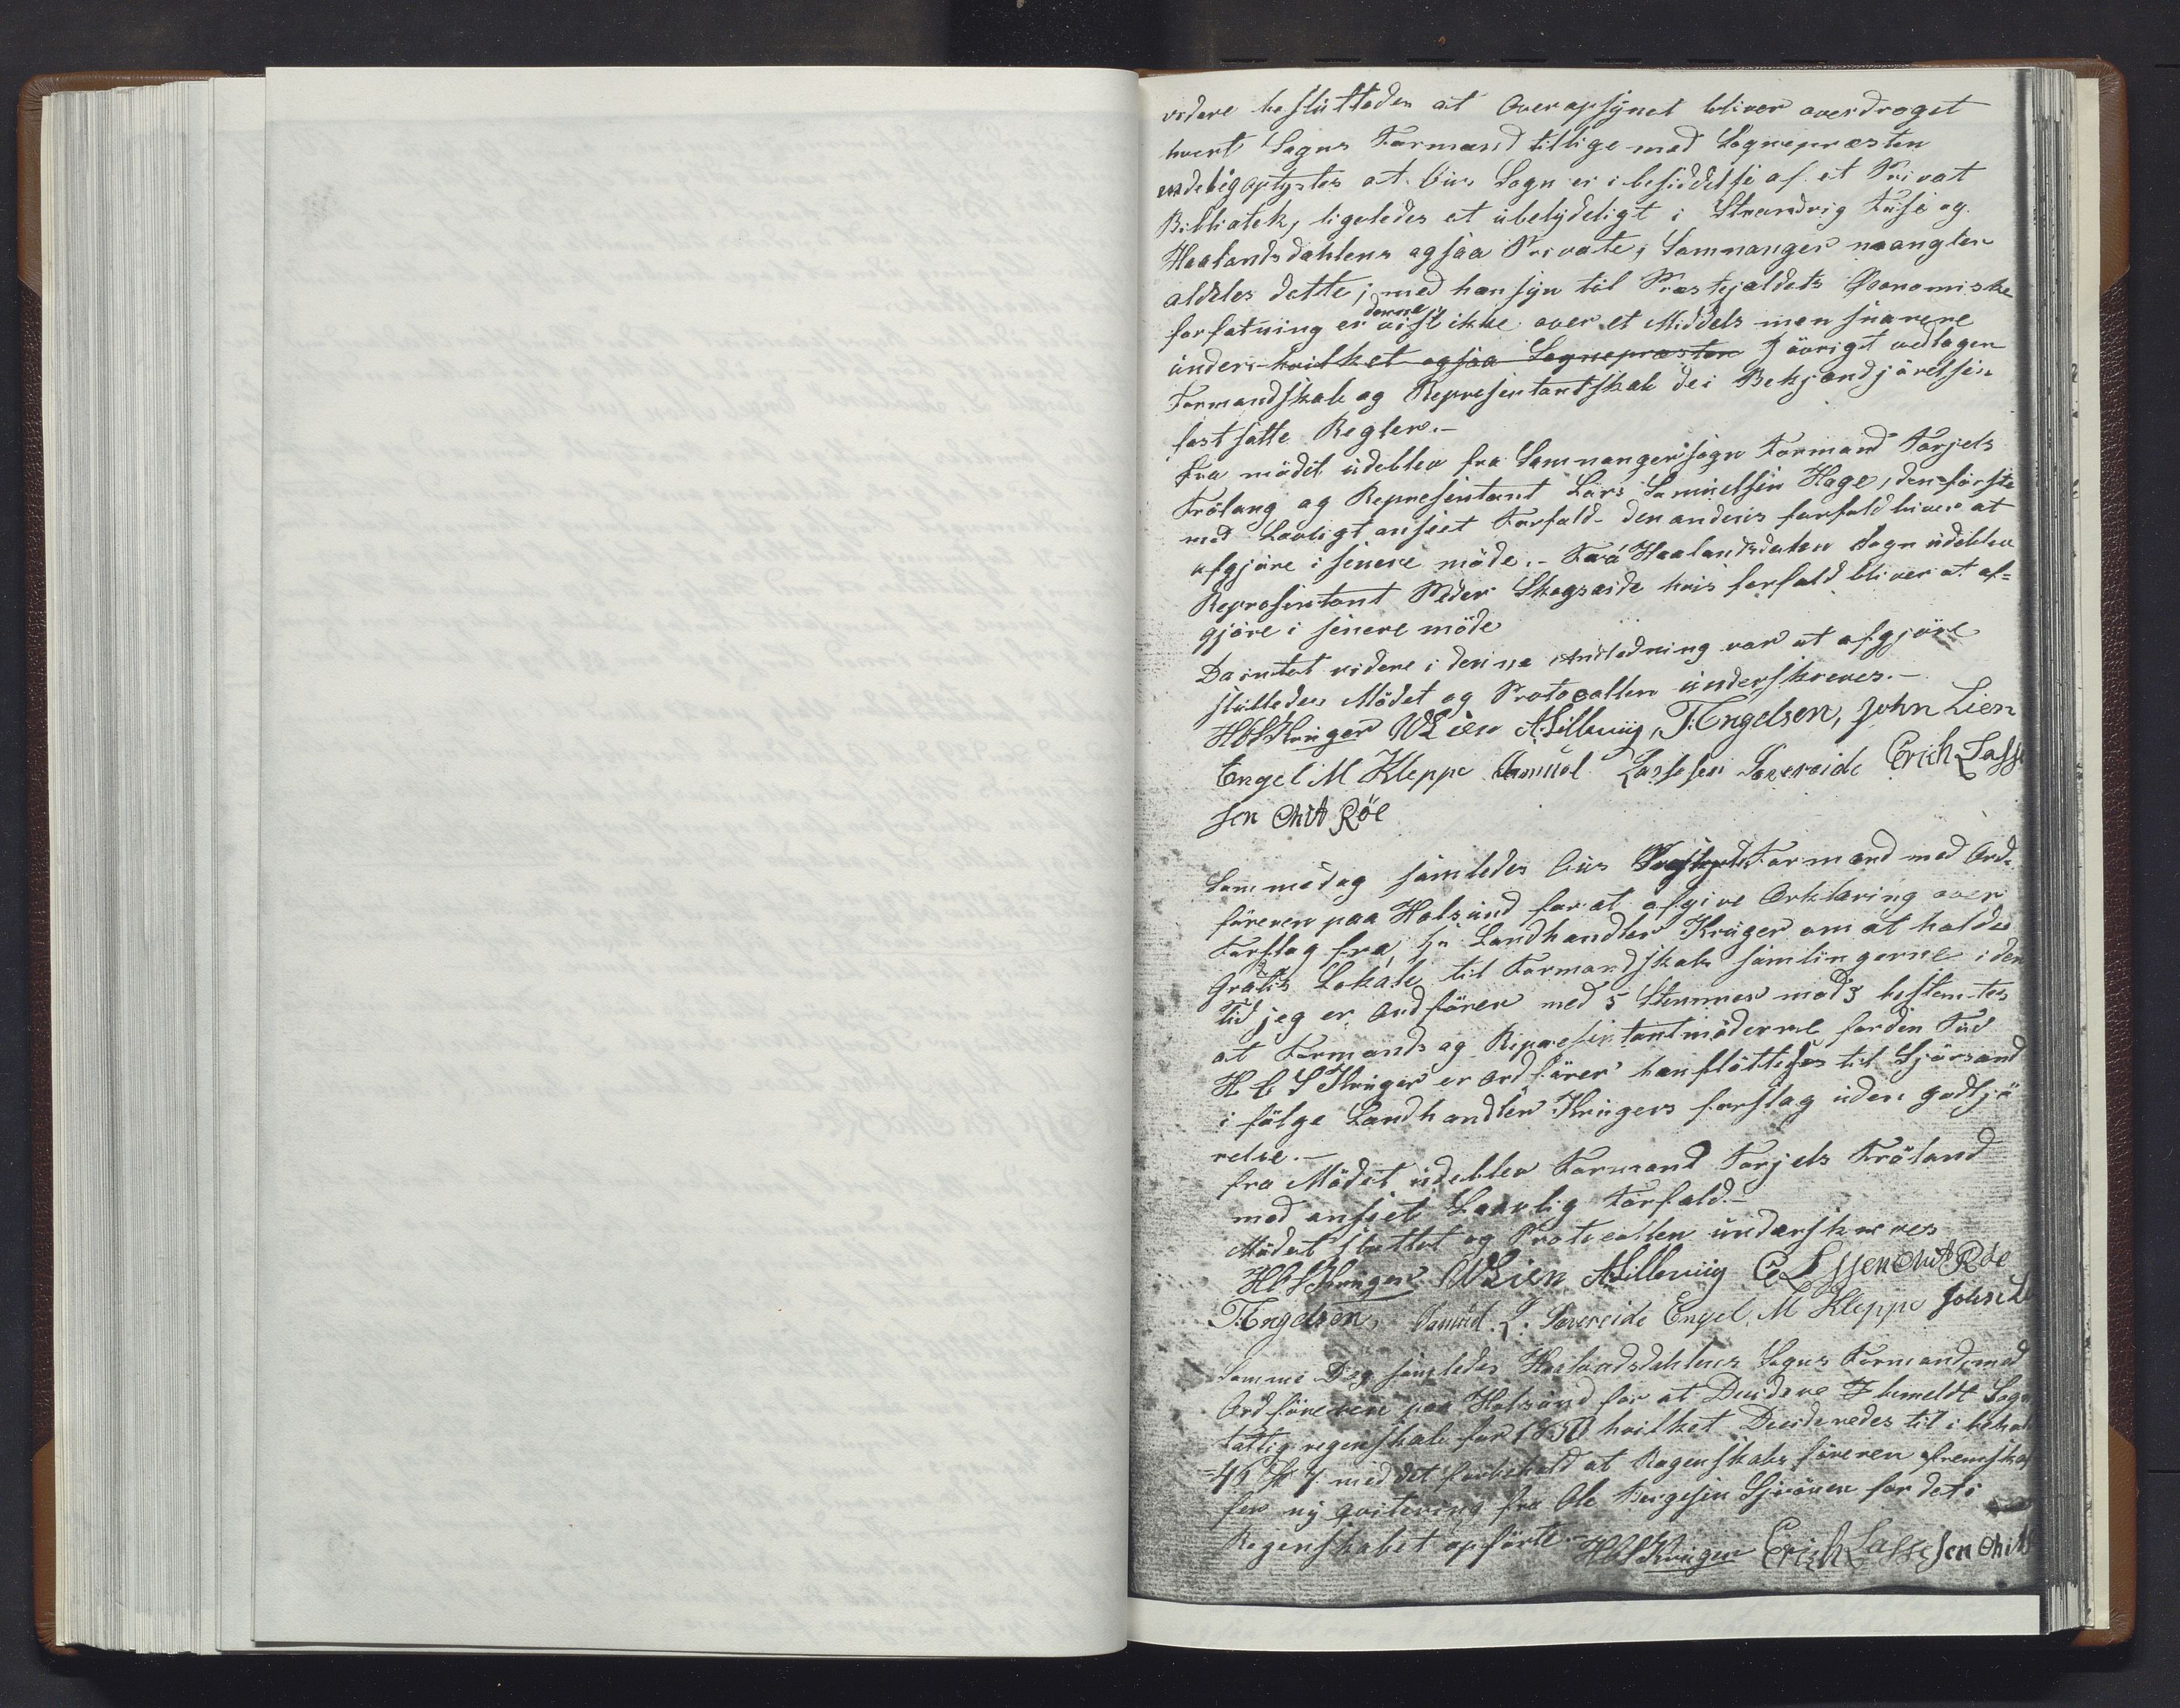 videre besluttedes at Overopsynet bliver overdroget
hvert Sogns Formænd tillige med Sognepræsten
endelig oplystes at Ous Sogn er i besiddelse af et Privat
Bibliotek, ligeledes et ubetydeligt i Strandvig Fuse og
Haalandsdahlens ogsaa Private, Samnanger mangler
aldeles dette; med hensyn til Præstejældets Øconomiske
forfatning er denne vist ikke over et Middels men snarere
under hvilket ogsaa Sognepræsten J övrigt vedtager
Formandskab og Representantskab de i Bekjendtjörelsen
fastsatte Regler.-
Fra mödet udeblev fra Samnanger sogn Formand Torjels
Frölang og Representant Lars Samuelsen Hage, den förste
med Lovligt anseet Forfald- den andens forfald bliver at
afgjöre i senere möde.- Fra Haalandsdalen Sogn udeblev
Representant Peder Skogseide hvis forfald bliver at af=
gjöre i senere möde
Da intet videre i denne Anledning var at afgjöre
sluttedes Mödet og Protocollen underskreves.-
HCSKruger NLien ALilleviig, T.Engelsen, John Lien
Engel M Kleppe Samuel Lassesen Sævereide Erich Lasse
sen Röe
Samme dag samledes Ous Formænd med Ord-
föreren paa Halsund for at afgive Erklæring over
Forslag fra Hr Landhandler Krüger om at holde
Gratis Lokale til Formandskabs samlingerne i den
Tid jeg er Ordförer med 5 Stemmer mod 3 bestemtes
at Formands og Representantmöderne for den Tid
H C S Krüger er Ordförer henflöttedes til Sjörsand
i fölge Landhandler Krügers forslag uden godtjö
relse.-
fra Mödet udeblev Formand Torjels Fröland
med anseet Lovlig Forfald.-
Mödet sluttet og Protocollen underskreves
HCSKruger NLien ALillevig E L ssen Röe
T.Engelsen, Samuel. L. Sævereide Engel M Kleppe John L
Samme Dag samledes Haalandsdahlens Sogns Formænd med
Ordföreren paa Halsund for at Decidere bemeldt Sogns
fattig regenskab for 1850 hvilket Decideredes til i behold
46 Sk med det forbehold at Regenskabs föreren fremskaf
fer ny qvitering fra Ole Börgesen Gjerön for det i
Regenskabet opförte HCSKruger Erich Lassesen